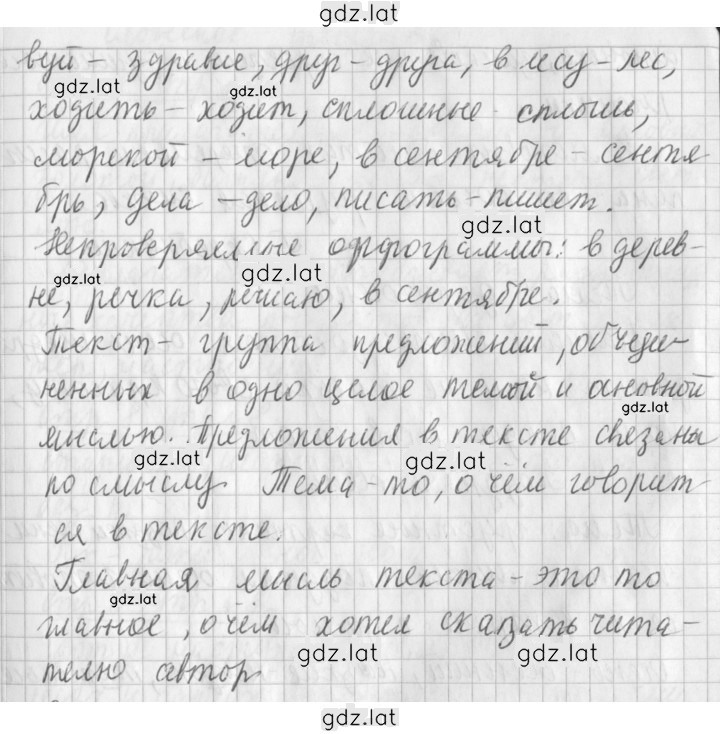 gdz.lat
вуй - здравие, друг - друга, в лесу - лес,
gdz.lat
gdz.lat
ходить - ходит, сплошные - сплошь,
морской - море, в сентябре - сентя
брь, дела - дело, писать - пишет.
gdz.lat
Непроверяемые орфограммы: в дерев-
gdz.lat
gdz.lat
не, речка, решаю, в сентябре.
Текст - группа предложений, объеди-
ненных в одно целое темой и основной
gdz.lat
мыслью. Предложения в тексте связаны
gdz.lat
gdz.lat
по смыслу Тема - то, о чём говорит-
ся в тексте.
Главная мысль текста - это то
gdz.lat
главное, о чём хотел сказать чита-
gdz.lat
gdz.lat
телю автор
gdz.lat